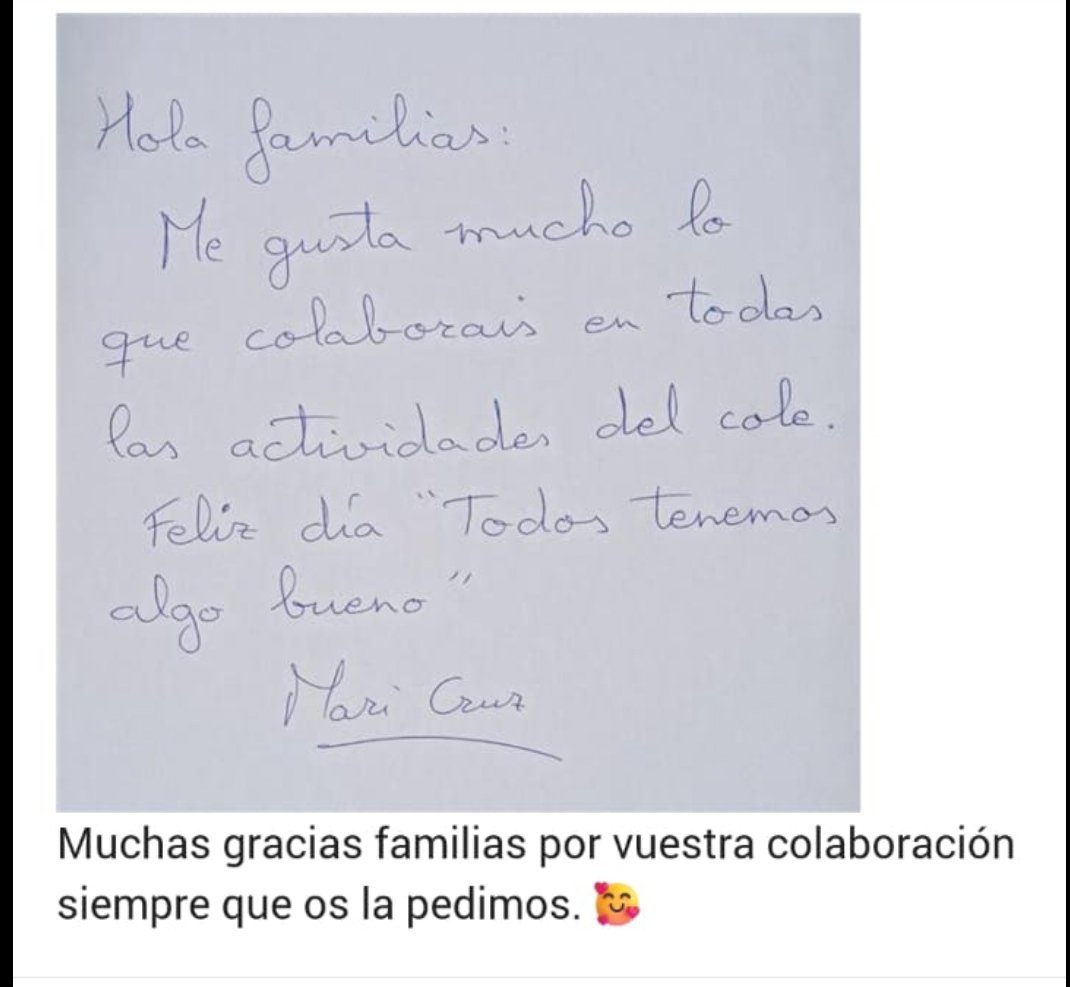 Hola familias:
Me gusta mucho lo
que colaborais en todas
las actividades del cole.
Feliz día "Todos tenemos
algo bueno"
Mari Cruz
Muchas gracias familias por vuestra colaboración
siempre que os la pedimos. 🥰